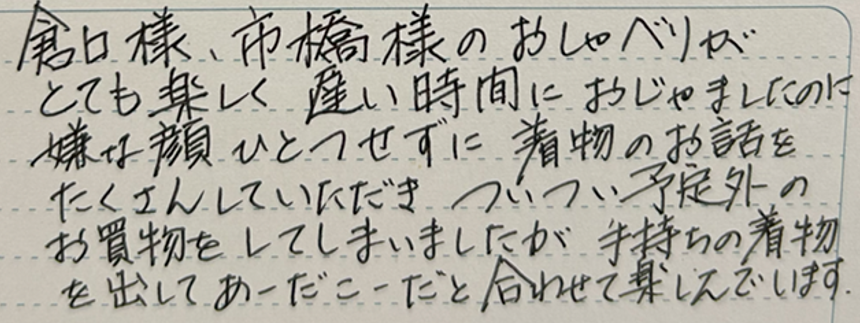 倉口様、市橋様のおしゃべりが
とても楽しく遅い時間におじゃましたのに
嫌な顔ひとつせずに着物のお話を
たくさんしていただき ついつい予定外の
お買物をしてしまいましたが 手持ちの着物
を出してあーだこーだと合わせて楽しんでいます.